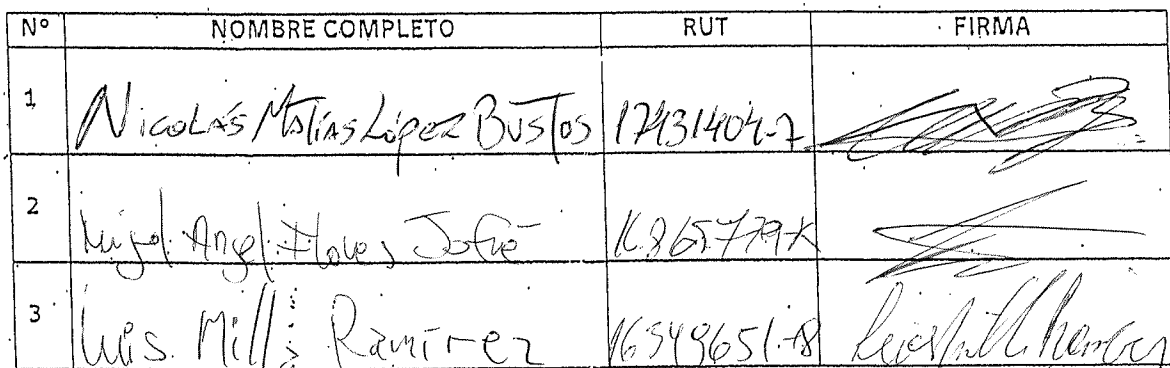 Nº NOMBRE COMPLETO RUT FIRMA
1 Nicolás Matías López Bustos 17431404-7
2 Miguel Angel Flores Jofré 16.865.779-K
3 Luis Mill Ramírez